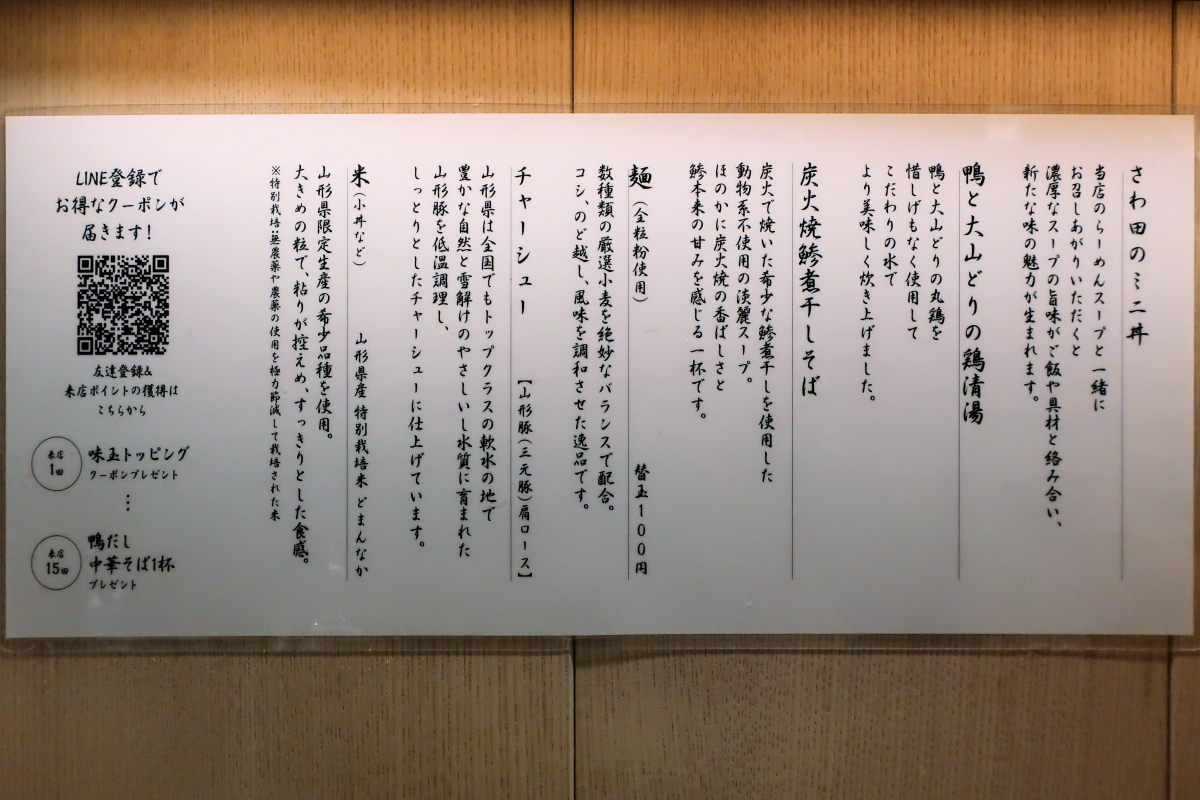 さわ田のミニ丼
当店のらーめんスープと一緒に
お召しあがりいただくと
濃厚なスープの旨味がご飯や具材と絡み合い、
新たな味の魅力が生まれます。
鴨と大山どりの鶏清湯
鴨と大山どりの丸鶏を
惜しげもなく使用して
こだわりの水で
より美味しく炊き上げました。
炭火焼鯵煮干しそば
炭火で焼いた希少な鯵煮干しを使用した
動物系不使用の淡麗スープ。
ほのかに炭火焼の香ばしさと
鯵本来の甘みを感じる一杯です。
麺（全粒粉使用） 替玉100円
数種類の厳選小麦を絶妙なバランスで配合。
コシ、のど越し、風味を調和させた逸品です。
チャーシュー 【山形豚（三元豚）肩ロース】
山形県は全国でもトップクラスの軟水の地で
豊かな自然と雪解けのやさしいし水質に育まれた
山形豚を低温調理し、
しっとりとしたチャーシューに仕上げています。
米（小丼など） 山形県産 特別栽培米 どまんなか
山形県限定生産の希少品種を使用。
大きめの粒で、粘りが控えめ、すっきりとした食感。
※特別栽培:無農薬や農薬の使用を極力節減して栽培された米
LINE登録で
お得なクーポンが
届きます!
友達登録&
来店ポイントの獲得は
こちらから
来店
1回
味玉トッピング
クーポンプレゼント
⋮
来店
15回
鴨だし
中華そば1杯
プレゼント